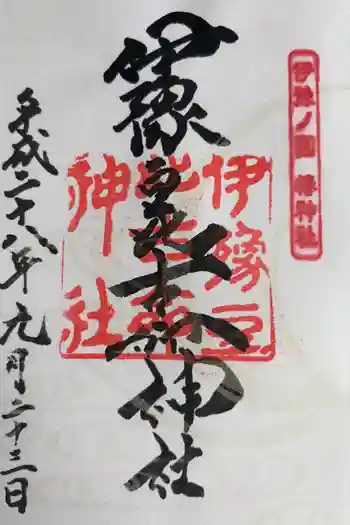 伊豫ノ國 椿神社
伊豫豆比古命神社
伊豫豆
比古命
神社
平成二十八年元月二十三日